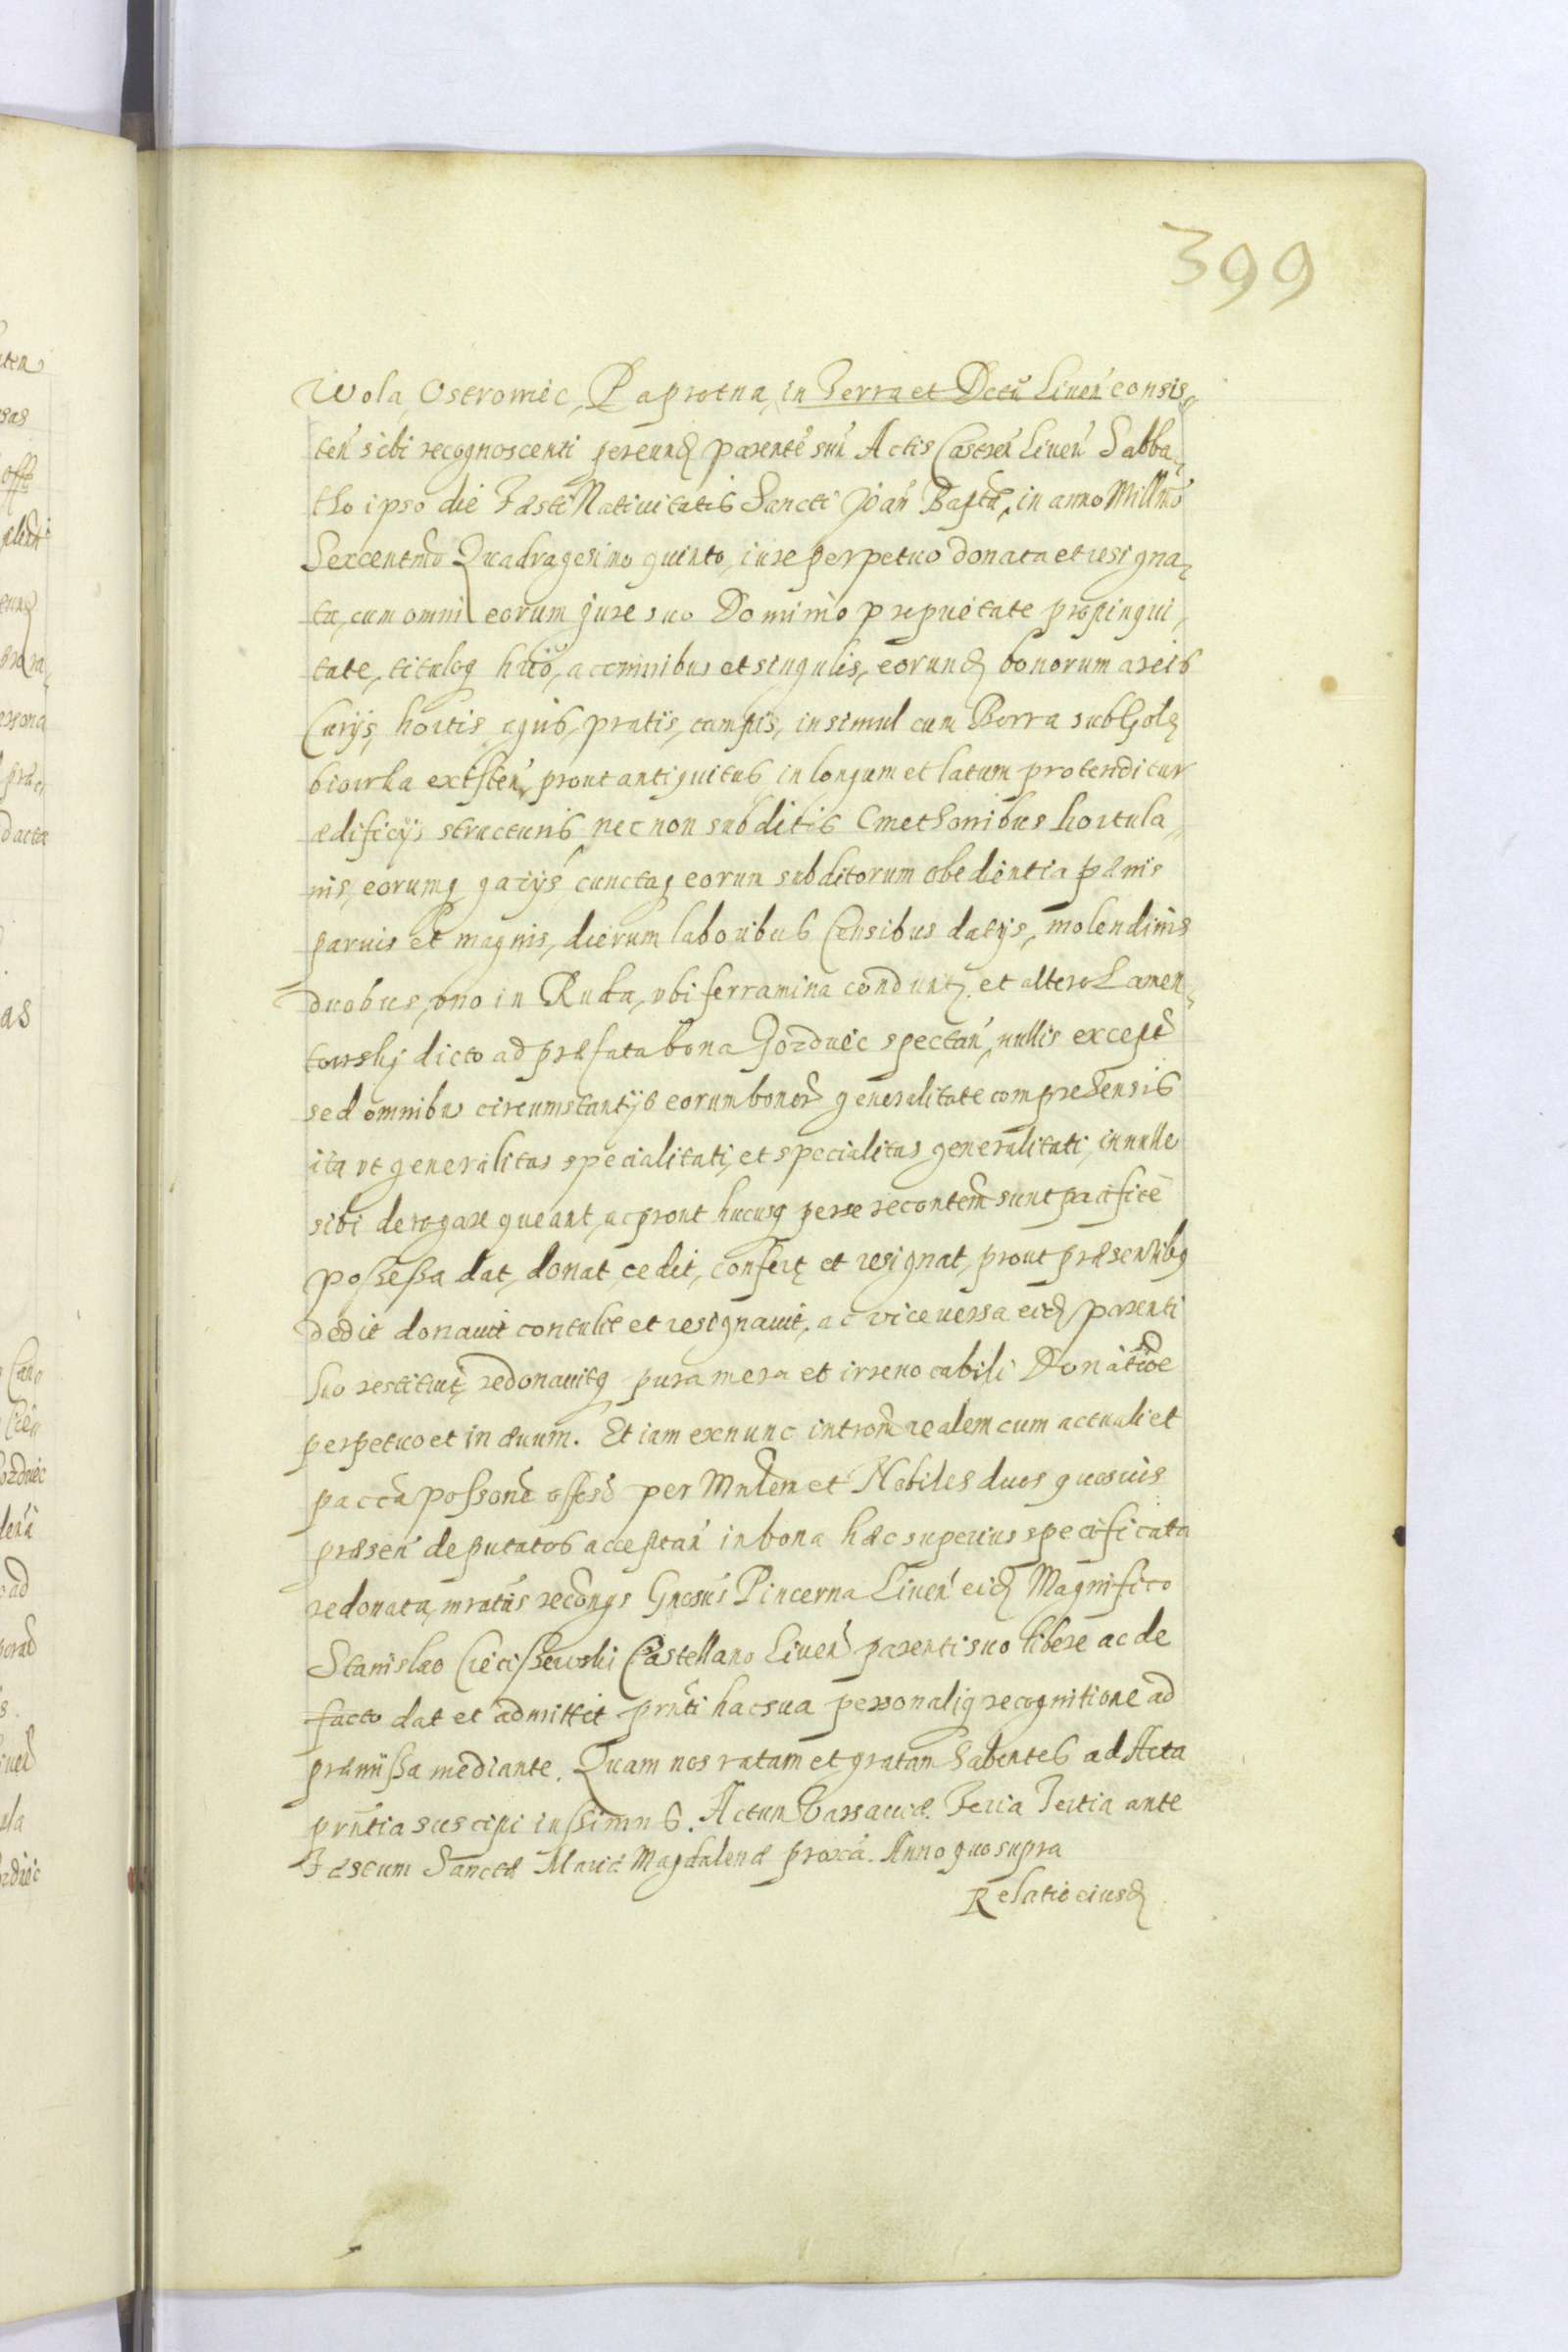 399
Wola Ostroméc, Paprotna, in Terra et Dctũ Liueń consis„
teń sibi recognoscenti per eund parenté suũ Actis Castreń Liueń Sabba„
tho ipso die Fæsti Natiuitatis Sancti Joań Baptæ, in anno Millmo
Sexcentmo Quadragesimo quinto, iure perpetuo donata et resigna„
ta, cum omni eorum jure suo Dominio proprietate propinqui„
tate, tituloq huiõ, ac omnibus et singulis, eorund bonorum areis
Curijs, hortis agris, pratis, campis, insimul cum Borra sub Golę
biowka existeń, prout antiquitus in longum et latum protenditur
ædificijs structuris nec non subditis Cmethonibus hortula„
nis, eorumq, cunctaq eorum subditorum obedientia pænis
paruis et magnis, dierum laboribus Censibus datijs, molendinis
duobus, vno in Ruda, vbi ferramina condunt, et altero Lamen„
towskj dicto ad præfata bona Jozdwic spectań, nullis except
sed omnibus circumstantijs eorum bonor generalitate comprehensis
ita vt generalitas specialitati, et specialitas generalitati, in nulle
sibi derogare queant, ac prout hucusq per se recontem sunt pacifice
possessa dat, donat, cedit, confert et resignat, prout præsentibq
dedit donauit contulit et resignauit, ac vice versa eid parenti
suo restituit, redonauitq pura mera et irreuocabili Donatioe
perpetuo et in æuum. Et iam ex nunc introm realem cum actuali et
paccã possone per Mnlem et Nobiles duos quosuis
præseń deputatos acceptań in bona hæc superius specificata
redonata, recongs Gnosus Pincerna Liueń eid Magnifico
Stanislao Cieciszewski Castellano Liueń parenti suo libere ac de
facto dat et admittit prnti hac sua personaliq recognitione ad
præmissa mediante. Quam nos ratam et gratam habentes ad Acta
prntia suscipi iussimus. Actum Varsauiæ. Feria Tertia ante
Fæstum Sanctæ Mariæ Magdalenæ proxa. Anno quo supra
Relatio eiusd